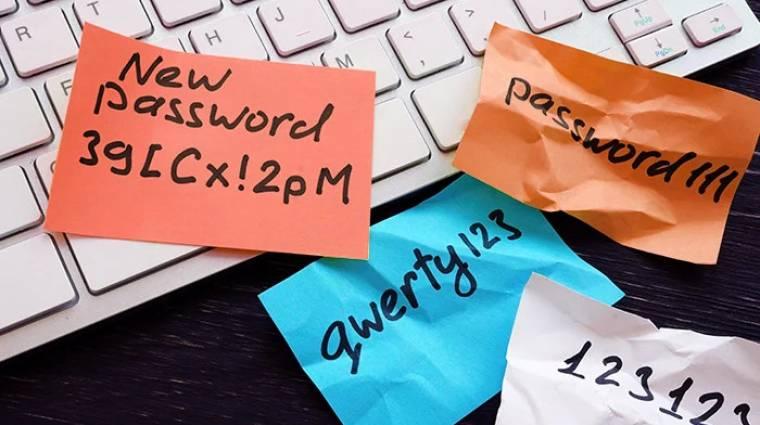 R
T
H
J
M
PgUp
PgDn
End
New
password
3g[Cx!2pM
password111
qwerty123
123123